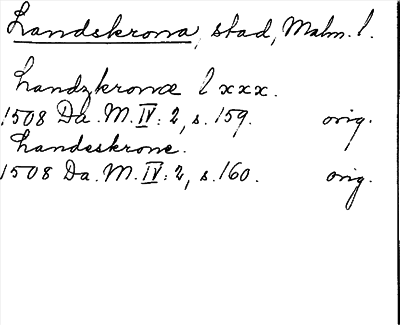 Landskrona, stad, Malm. l.
Landzkronæ l xxx.
1508 Da. M. IV: 2, s. 159. orig.
Landeskrone.
1508 Da. M. IV: 2, s. 160. orig.